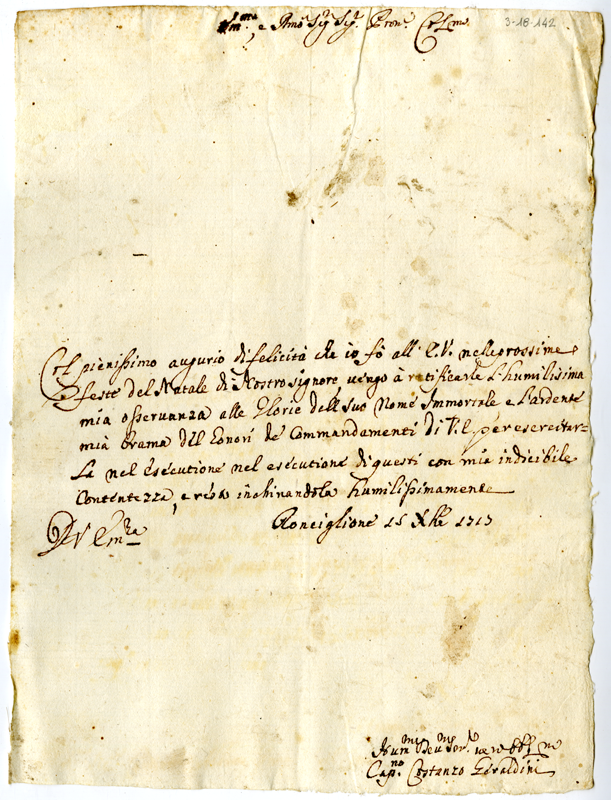 Em.mo, e Rmo Sig. Sig. Pron. Col.mo
3-18-142
Col pienissimo augurio di felicità che io fò all'E.V. nelle prossime
feste del Natale di Nostro Signore vengo à ratificarle l'humilissima
mia osservanza alle Glorie del suo Nome Immortale e l'ardente
mia brama dell'honori de Commandamenti di V.E. per esercitar=
la nel esecutione nel esecutione di questi con mia indicibile
Contentezza, e resto inchinandola humilissimamente
D V Em.za
Ronciglione 15 Xbre 1717
Hum.mo Dev.mo Ser.
Cap.no Costanzo Geraldini